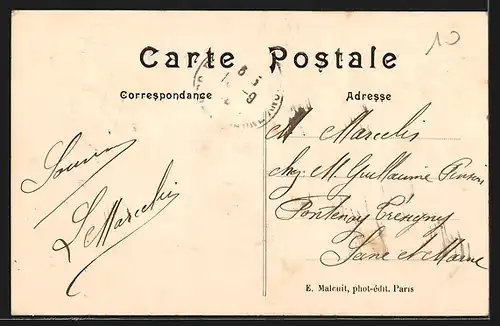 10
Carte Postale
Correspondance
Adresse
Souvenir
L Marcelis
M Marcelis
chez M. Guillaume Pinson
Fontenay Trésigny
Seine et Marne
E. Malcuit, phot-édit. Paris